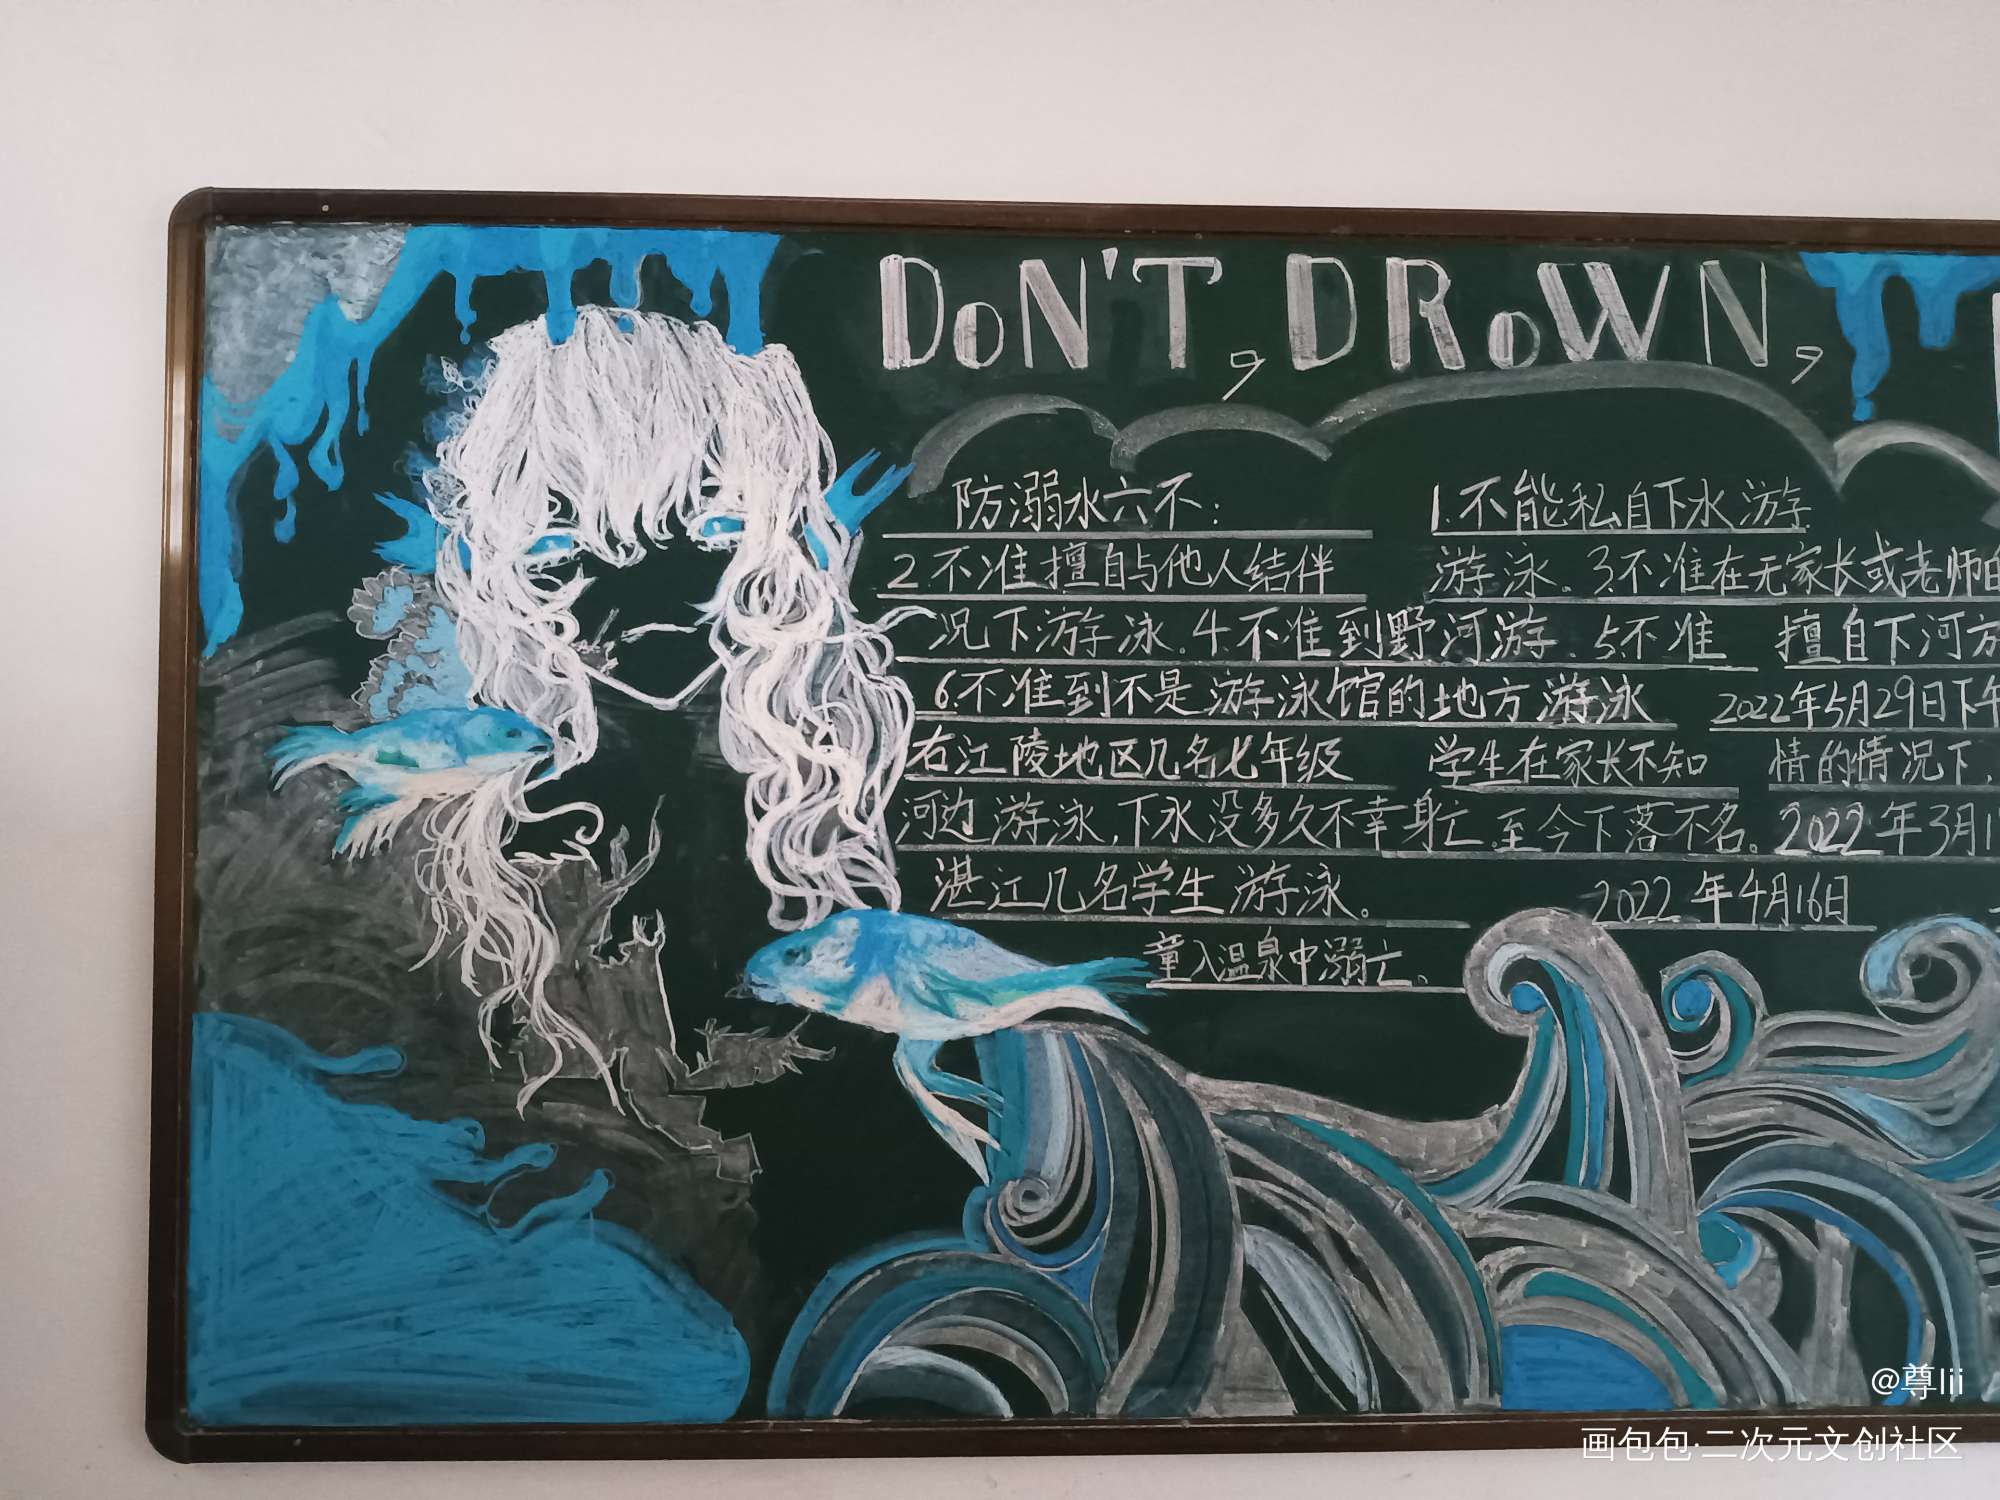 DoN'T, DRoWN,
防溺水六不: 1.不能私自下水游
2不准擅自与他人结伴 游泳。3.不准在无家长或老师的
况下游泳.4.不准到野河游.5.不准 擅自下河方
6.不准到不是游泳馆的地方游泳 2022年5月29日下午
右江陵地区几名七年级 学生在家长不知 情的情况下,
河边游泳,下水没多久不幸身亡.至今下落不名。2022年3月1
湛江几名学生游泳。 2022年4月16日
童入温泉中溺亡。
@尊lii
画包包·二次元文创社区